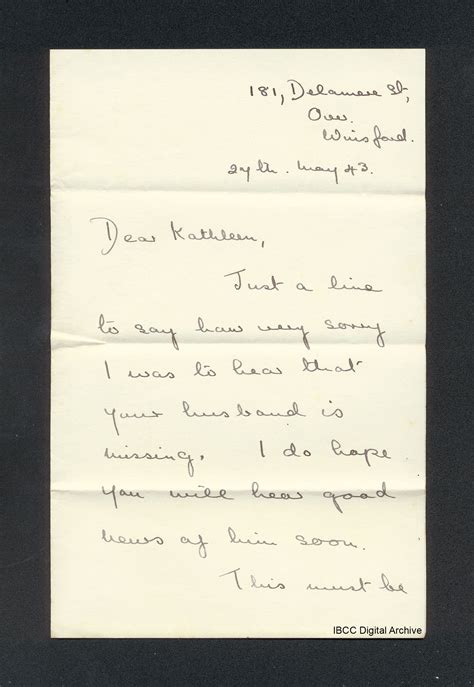 181, Delamere St,
Over.
Winsford.
27th. May 43.
Dear Kathleen,
Just a line
to say how very sorry
I was to hear that
your husband is
missing. I do hope
you will hear good
news of him soon.
This must be
IBCC Digital Archive